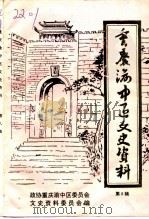 220
重庆渝中区文史资料
第八辑
政协重庆渝中区委员会
文史资料委员会编